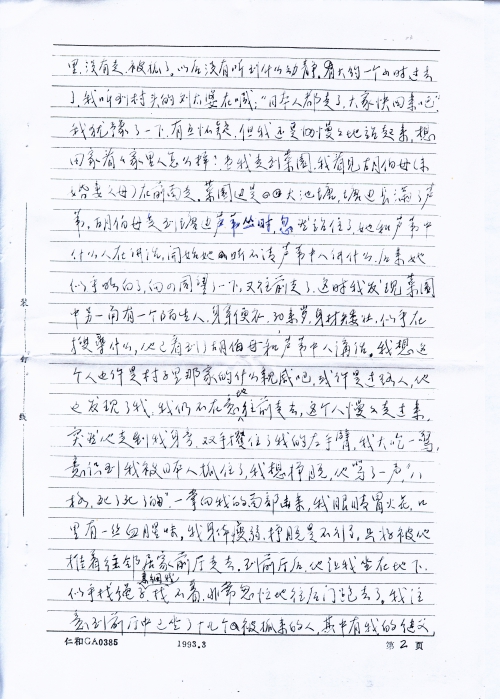 里,没有走,被抓了。以后没有听到什么动静。有大约一个小时过去
了,我听到村头的刘大婆在喊:"日本人都走了,大家快回来吧"
我犹豫了一下,有点怀疑,但我还是慢慢地站起来,想
回家看看家里人怎么样?当我走到菜园,我看见胡伯母(未
婚妻父母)在前面走。菜园边是个大池塘,塘边长满了芦
苇,胡伯母走到塘边芦苇丛时,忽然站住了,她和芦苇中
什么人在讲话,开始她听不清芦苇中人讲什么,后来她
似乎明白了,向四周望了一下,又往前走了。这时我发现菜园
中另一角有一个陌生人,身穿便衣,30来岁,身材矮壮,似乎在
搜寻什么,他已看到胡伯母和芦苇中人讲话。我想这
个人也许是村子里那家的什么亲戚吧,或许是过路人,他
也发现了我,我仍不在意地往前走去,这个人慢慢走过来,
突然他走到我身旁,双手攫住了我的左手臂,我大吃一惊,
意识到我被日本人抓住了,我想挣脱,他骂了一声"八
格,死了死了的",一拳向我的面部击来,我眼睛冒火花,口
里有一丝血腥味,我身体瘦弱,挣脱是不行了,只好被他
推着往邻居家前厅走去,到前厅后,他让我坐在地下,
似乎找绳子来捆我,找不着,非常急忙地往后门跑去了。我注
意到前厅中已坐了十几个被抓来的人,其中有我的继父,
装 订 线
仁和GA0385 1993.3 第 2 页